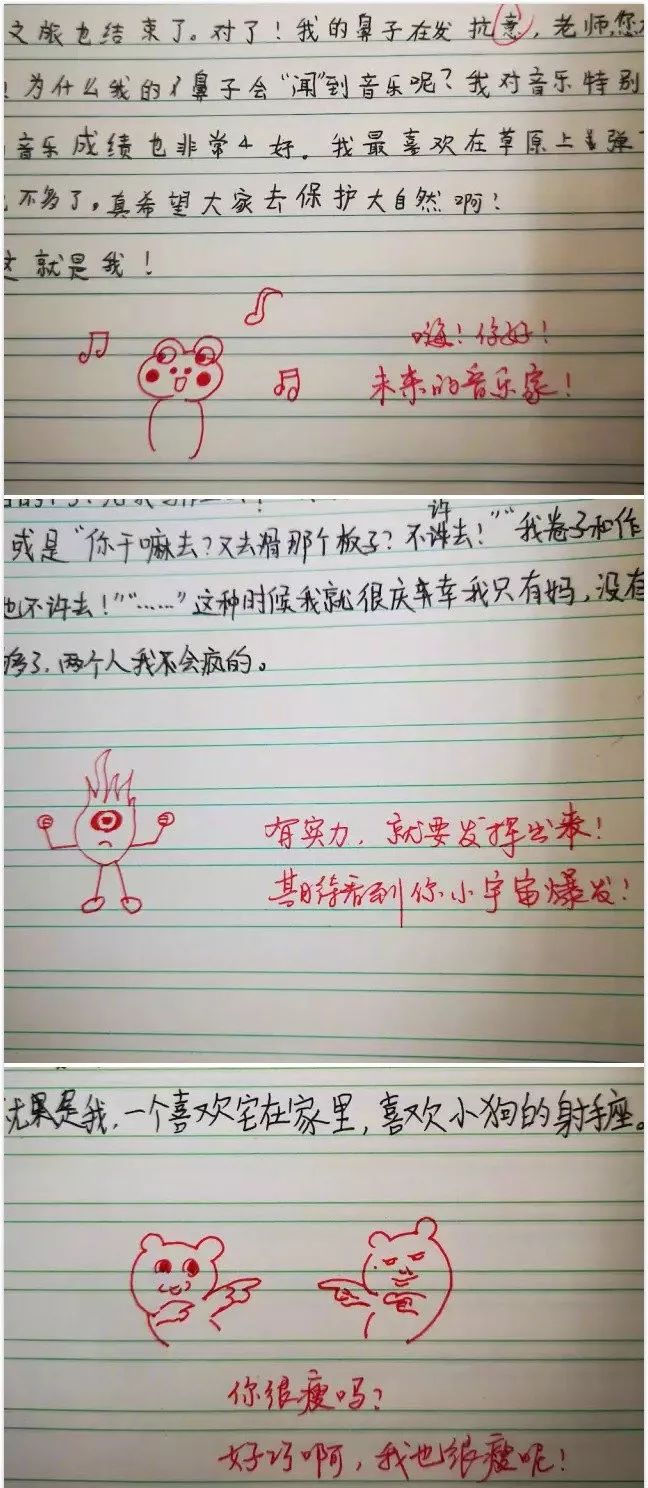 文旅也结束了。对了！我的鼻子在发抗意，老师，您
为什么我的鼻子会“闻”到音乐呢？我对音乐特别
音乐成绩也非常好。我最喜欢在草原上弹
不多了。真希望大家去保护大自然啊！
这就是我！
嗨！你好！
未来的音乐家！
许
或是“你干嘛去？又去滑那个板子？不许去！”“我卷子和作
也不许去！”“……”这种时候我就很庆幸我只有妈，没有
多了，两个人我不会疯的。
有实力，就要发挥出来！
期待看到你小宇宙爆发！
就是我，一个喜欢宅在家里，喜欢小狗的射手座。
你很瘦吗？
好巧啊，我也很瘦呢！